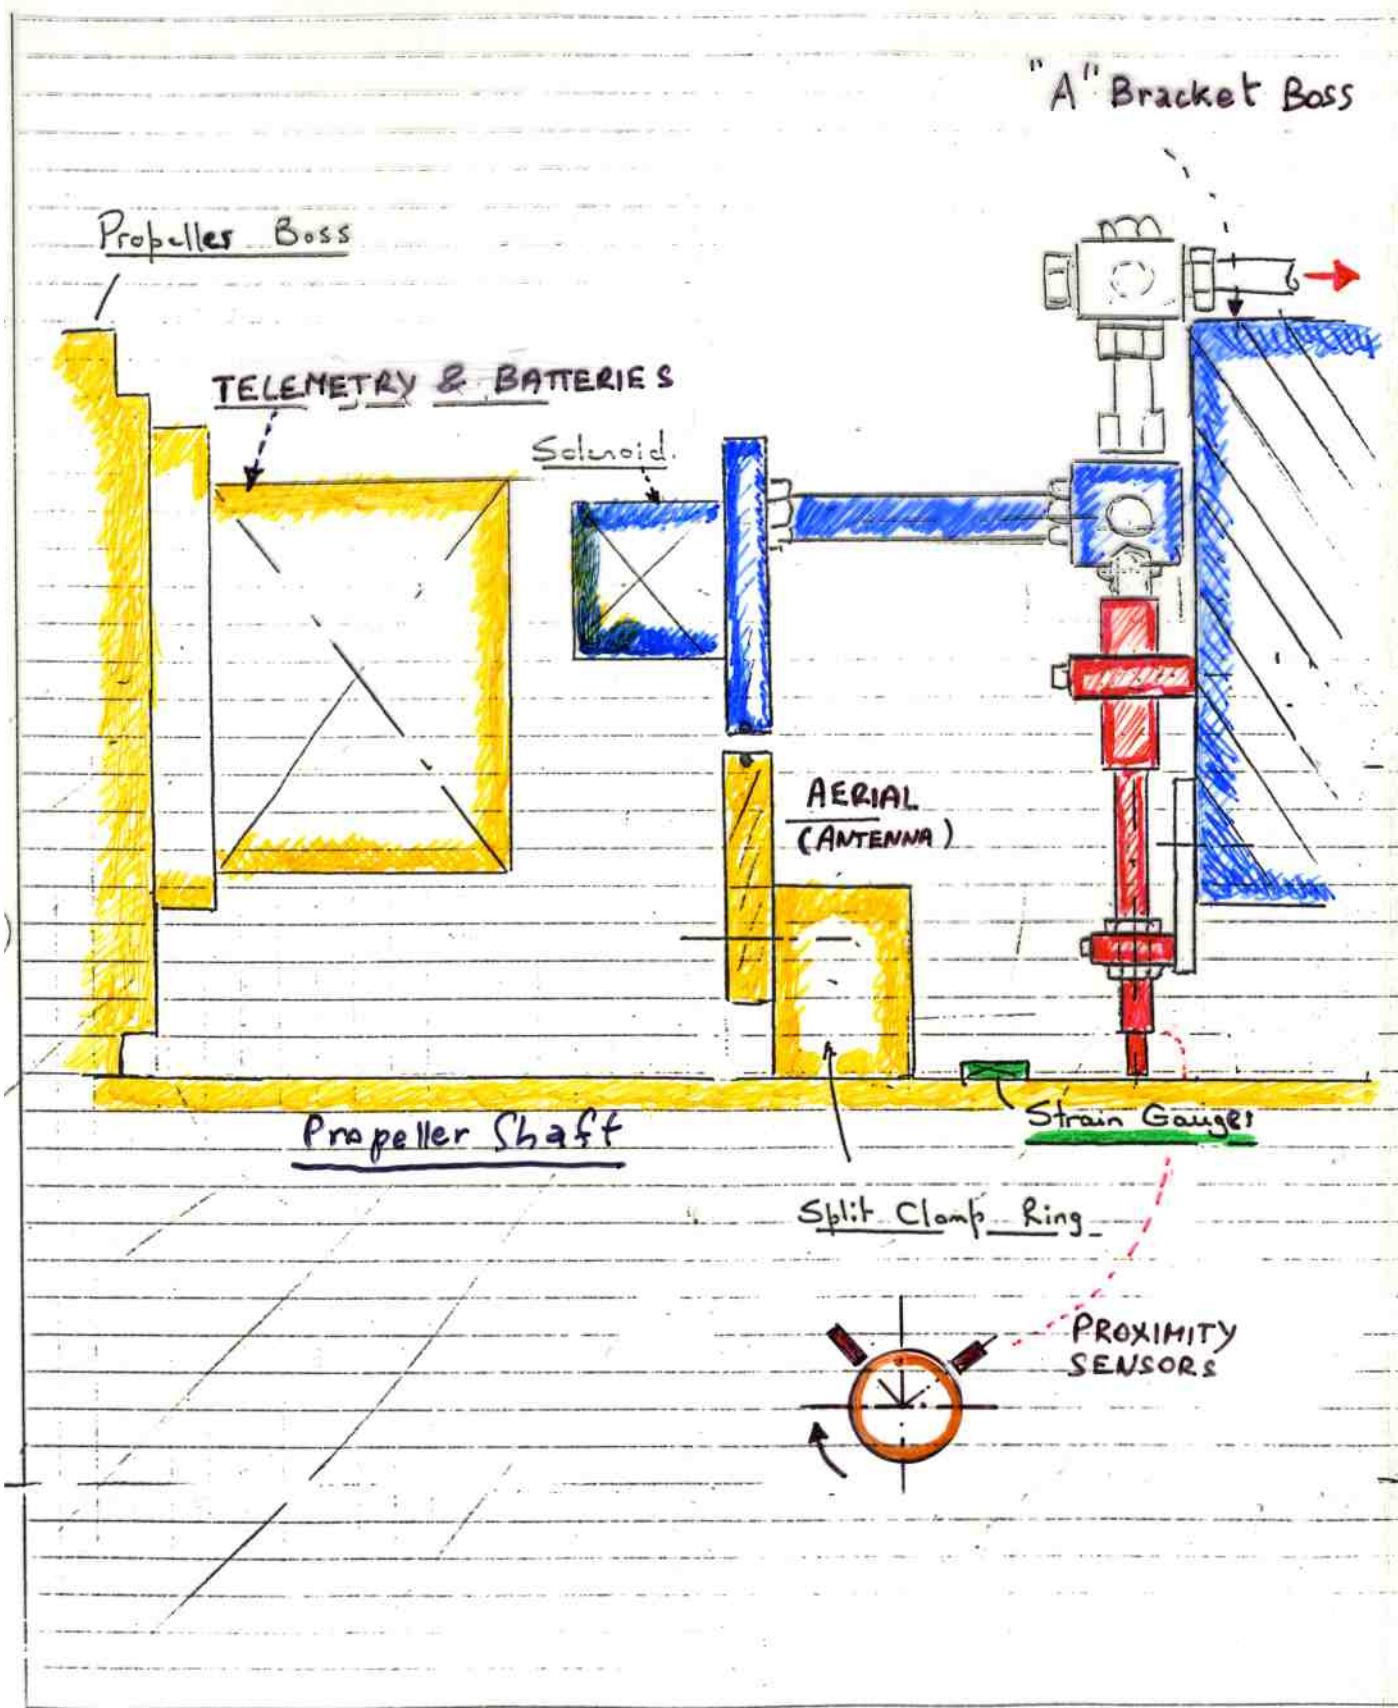 "A" Bracket Boss
Propeller Boss
TELEMETRY & BATTERIES
Solenoid.
AERIAL
(ANTENNA)
Propeller Shaft
Strain Gauges
Split Clamp Ring
PROXIMITY
SENSORS